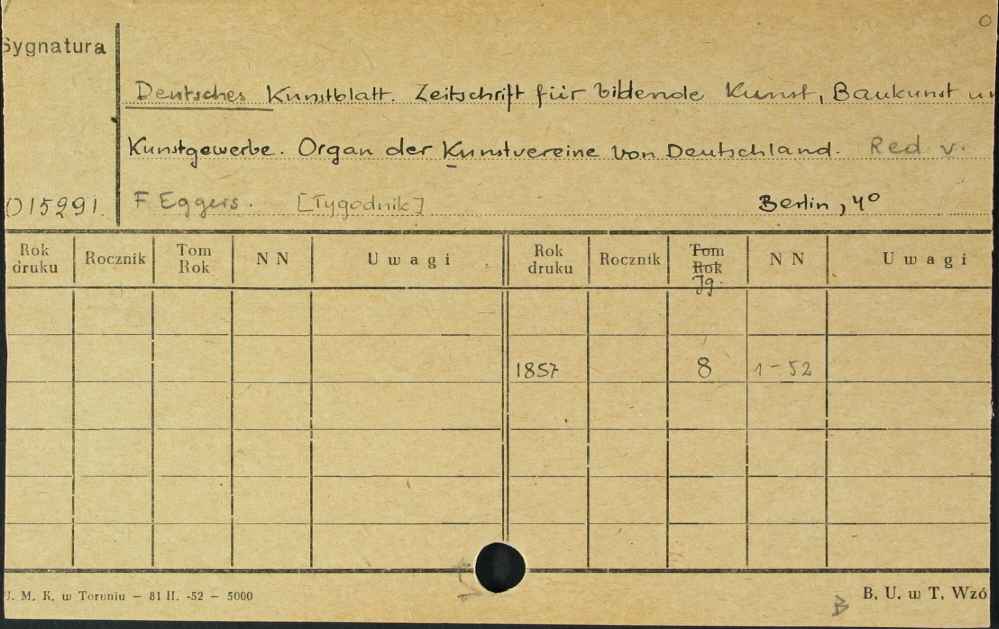 Sygnatura
Deutsches Kunstblatt. Zeitschrift für bidende Kunst, Baukunst un
Kunstgewerbe. Organ der Kunstvereine von Deutschland. Red v.
015291 F. Eggers. [Tygodnik] Berlin, 4°
Rok druku Rocznik Tom Rok NN Uwagi Rok druku Rocznik Tom Rok Jg. NN Uwagi
1857 8 1-52
U. M. K. w Toruniu — 81 II. -52 — 5000 B. U. w T. Wzó
B